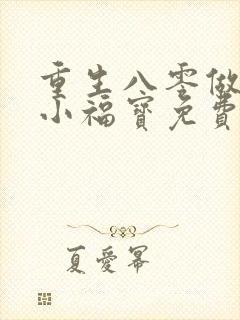 重生八零做
小福宝免费
夏爱幂